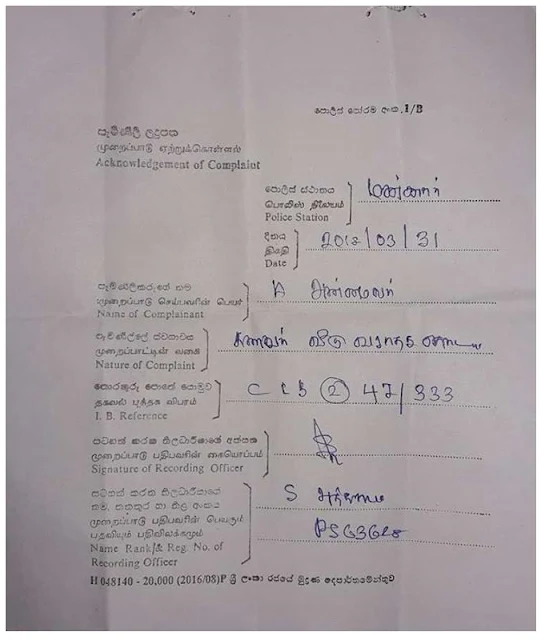 පොලිස් පෝරම අංක. I/B
පැමිණිලි ලදුපත
முறைப்பாடு ஏற்றுக்கொள்ளல்
Acknowledgement of Complaint
පොලිස් ස්ථානය
பொலிஸ் நிலையம்
Police Station
மன்னார்
දිනය
திகதி
Date
2018/03/31
පැමිණිලිකරුගේ නම
முறைப்பாடு செய்பவரின் பெயர்
Name of Complainant
A
පැමිණිල්ලේ ස්වභාවය
முறைப்பாட்டின் வகை
Nature of Complaint
கணவன் வீடு வராதது
තොරතුරු පොතේ යොමුව
தகவல் புத்தக விபரம்
I. B. Reference
C I B (2) 47/333
සටහන් කරන නිලධාරියාගේ අත්සන
முறைப்பாடு பதிபவரின் கையொப்பம்
Signature of Recording Officer
සටහන් කරන නිලධාරියාගේ
නම, තනතුර හා නිල අංකය
முறைப்பாடு பதிபவரின் பெயரும்
பதவியும் பதிவிலக்கமும்
Name Rank/& Reg. No. of
Recording Officer
S
H 048140 - 20,000 (2016/08)P ශ්‍රී ලංකා රජයේ මුද්‍රණ දෙපාර්තමේන්තුව